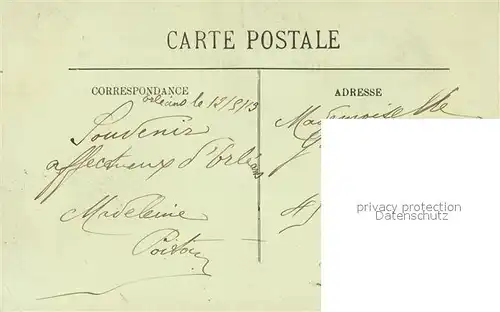 CARTE POSTALE
CORRESPONDANCE
ADRESSE
Orléans le 13/5/13
Souvenir
affectueux d'Orléans
Madeleine
Mademoiselle
G
privacy protection
Datenschutz